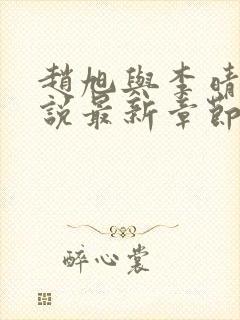 趙旭與李晴
說最新章節
醉心裳